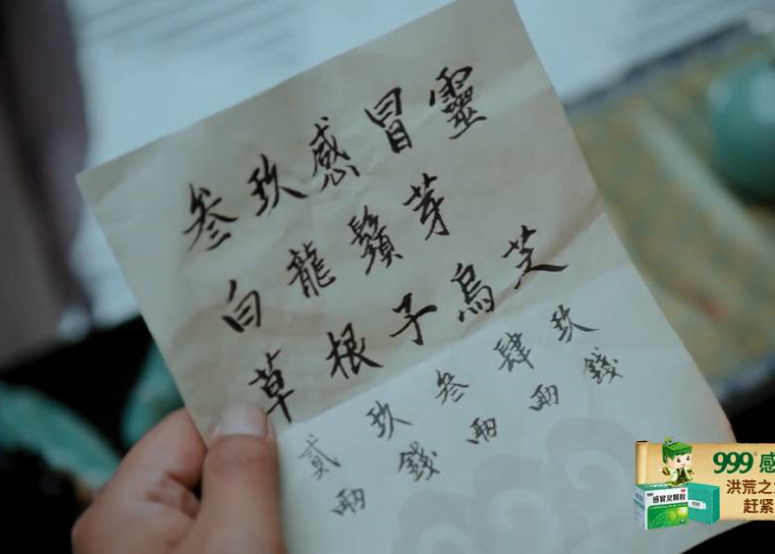 叁玖感冒靈
白龍鬚芽
草根子烏芝
貳玖叁肆玖
兩錢兩兩錢
999®感
洪荒之
赶紧
感冒灵颗粒